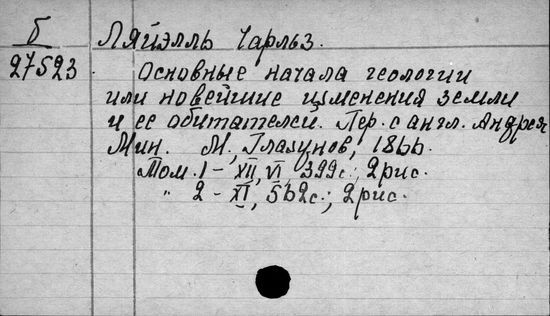 Б
27523
Ляйэлль Чарльз.
Основные начала геологии
или новейшие изменения земли
и ее обитателей. Пер. с англ. Андрея
Мин. М., Глазунов, 1866.
Том. 1 - XII, VI, 399с.; 2рис.
" 2 - XI, 562с.; 2рис.